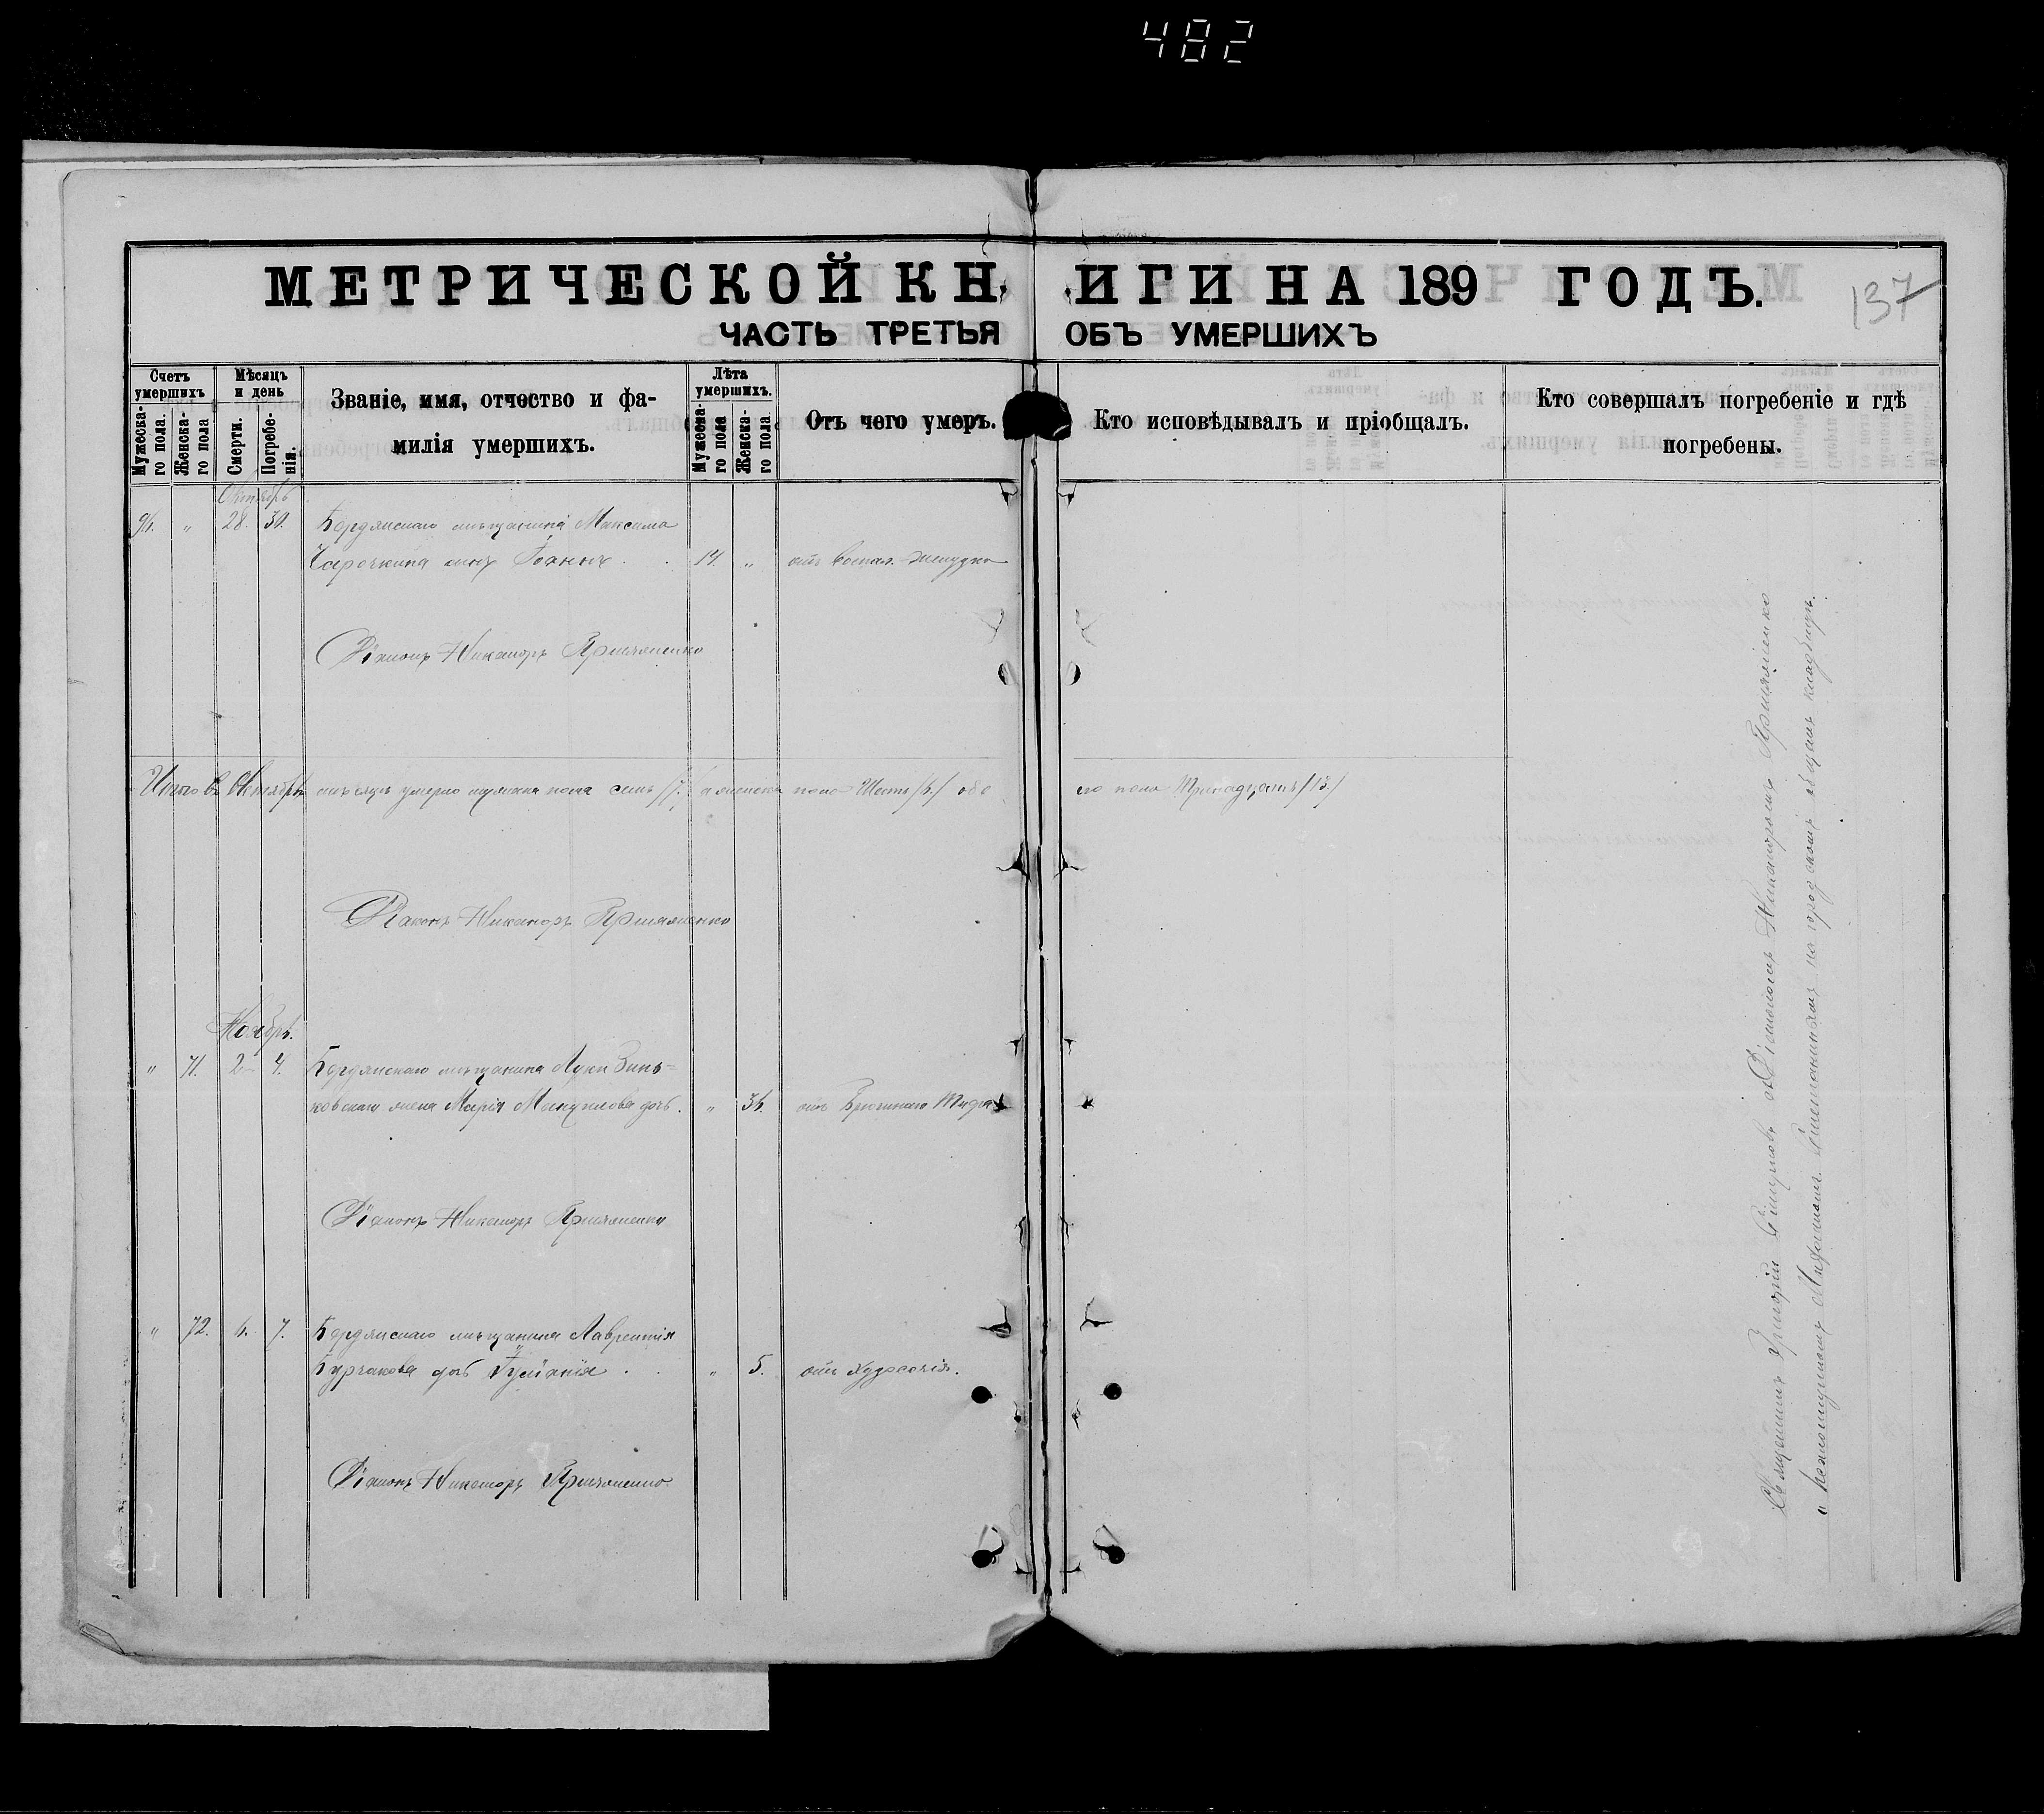 482
МЕТРИЧЕСКОЙ КНИГИ НА 189 ГОДЪ.
137
ЧАСТЬ ТРЕТЬЯ ОБЪ УМЕРШИХЪ
Счетъ умершихъ
Мужеска-го пола.
Женска-го пола
Мѣсяцъ и день
Смерти.
Погребе-нія.
Званіе, имя, отчество и фа-
милія умершихъ.
Лѣта умершихъ.
Мужеска-го пола
Женска-го пола
Отъ чего умеръ.
Кто исповѣдывалъ и пріобщалъ.
Кто совершалъ погребеніе и гдѣ
погребены.
Октябрь
" 28. 30. Бердянскаго мѣщанина Максима
сынъ Іоаннъ 14. " отъ воспал. желудка
Діаконъ Никаноръ
Итого въ Октябрѣ мѣсяцѣ умерло мужска пола семь /7/, а женска пола шесть /6/ обо его пола тринадцать /13/
Діаконъ Никаноръ
Ноябрь.
" 71. 2 4. Бердянскаго мѣщанина Луки Зинь=
ковскаго жена Марія Мануилова дочь. " 36. отъ Брюшнаго Тифа
Діаконъ Никаноръ
" 72. 6. 7. Бердянскаго мѣщанина Лаврентія
Бурчакова дочь Іуліанія " 5. отъ Худосочія.
Діаконъ Никаноръ
Священникъ Григорій съ Діакономъ Никаноромъ
и псаломщикомъ на городскомъ общемъ кладбищѣ.